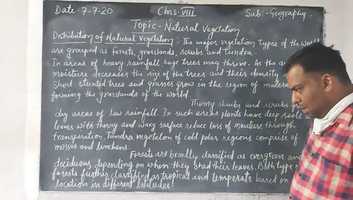 Date-7-7-20 Class-VIII Sub:-Geography.
Topic-Natural Vegetation
Distribution of Natural Vegetation:- The major vegetation types of the world
are grouped as forests, grasslands, scrubs and tundra.
In areas of heavy rainfall huge trees may thrive. As the
moisture decreases the size of the trees and their density
Short stunted trees and grasses grow in the region of
forming the grasslands of the world.
Thorny shrubs and scrubs
dry areas of low rainfall. In such areas plants have deep
leaves with thorny and waxy surface reduce loss of moisture through
transpiration. Tundra vegetation of cold polar regions comprise of
mosses and lichens.
Forests are broadly classified as evergreen and
deciduous depending on when they shed their leaves. Both type
forests further classified as tropical and temperate based on
location in different latitudes.